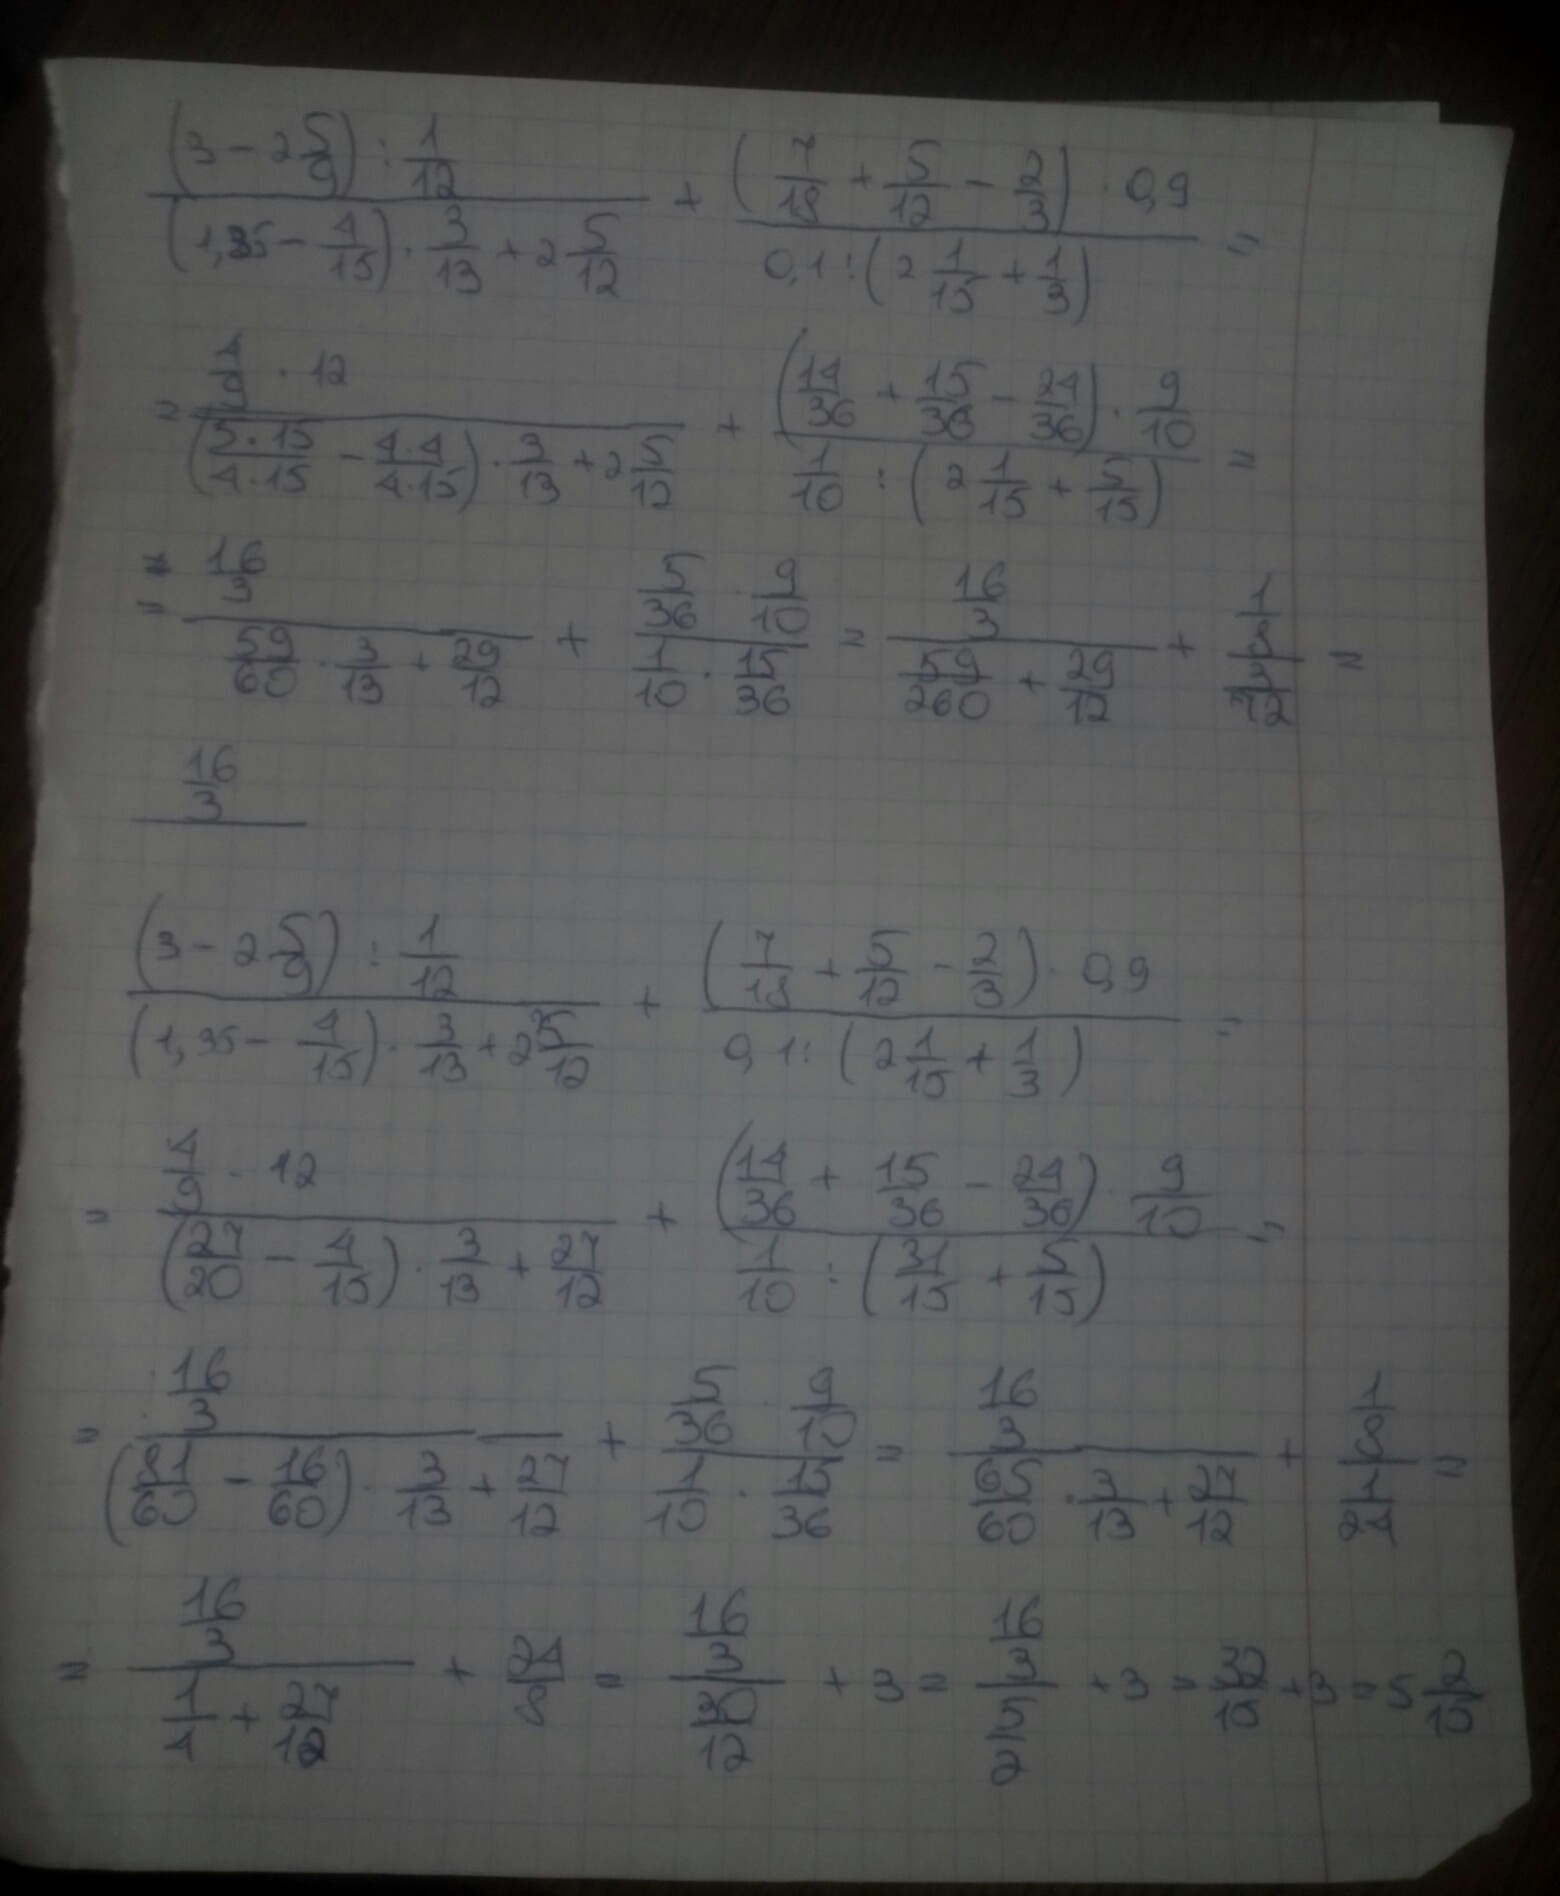 (3 - 2 5/9) : 1/12 / (1,35 - 4/15) · 3/13 + 2 5/12 + (7/18 + 5/12 - 2/3) · 0,9 / 0,1 : (2 1/15 + 1/3) =
= 4/9 · 12 / (5·15/4·15 - 4·4/4·15) · 3/13 + 2 5/12 + (14/36 + 15/36 - 24/36) · 9/10 / 1/10 : (2 1/15 + 5/15) =
= 16/3 / 59/60 · 3/13 + 29/12 + 5/36 · 9/10 / 1/10 · 15/36 = 16/3 / 59/260 + 29/12 + 1/8 / 3/72 =
16/3
(3 - 2 5/9) : 1/12 / (1,35 - 4/15) · 3/13 + 2 5/12 + (7/18 + 5/12 - 2/3) · 0,9 / 0,1 : (2 1/15 + 1/3) =
= 4/9 · 12 / (27/20 - 4/15) · 3/13 + 27/12 + (14/36 + 15/36 - 24/36) · 9/10 / 1/10 : (31/15 + 5/15) =
= 16/3 / (81/60 - 16/60) · 3/13 + 27/12 + 5/36 · 9/10 / 1/10 · 15/36 = 16/3 / 65/60 · 3/13 + 27/12 + 1/8 / 1/24 =
= 16/3 / 1/4 + 27/12 + 24/8 = 16/3 / 30/12 + 3 = 16/3 / 5/2 + 3 = 32/15 + 3 = 5 2/15